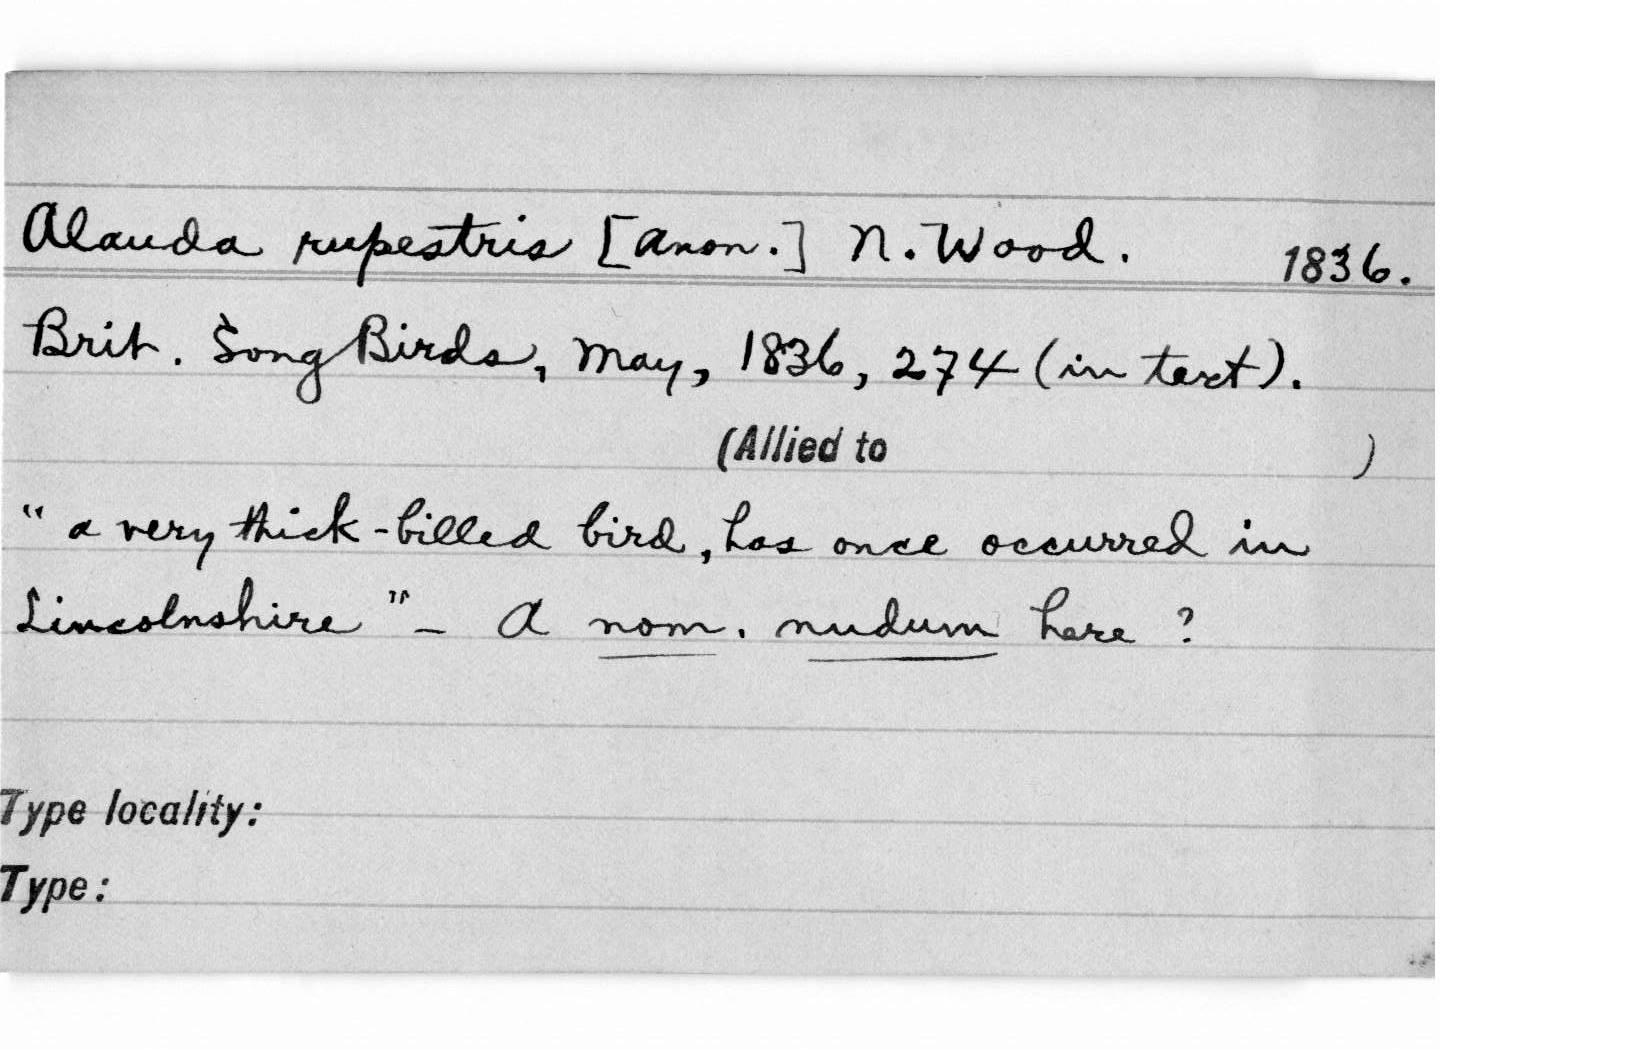 Alauda rupestris [anon.] N. Wood. 1836.
Brit. Song Birds, May, 1836, 274 (in text).
(Allied to )
"a very thick-billed bird, has once occurred in
Lincolnshire" – A nom. nudum here?
Type locality:
Type: